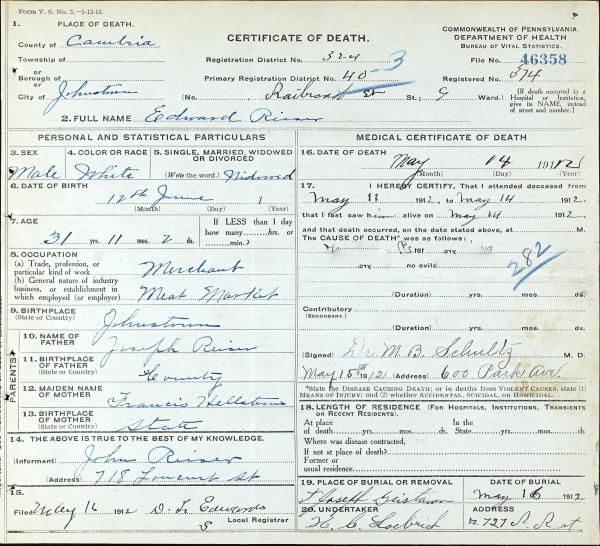 Form V. S. No. 5.—1-12-10.
1. PLACE OF DEATH.
County of Cambria
Township of
or
Borough of
or
City of Johnstown
CERTIFICATE OF DEATH.
Registration District No. 324
Primary Registration District No. 40-3
(No. Railroad St St.; 9 Ward.)
COMMONWEALTH OF PENNSYLVANIA
DEPARTMENT OF HEALTH
BUREAU OF VITAL STATISTICS.
File No. 46358
Registered No. 374
[If death occurred in a Hospital or Institution, give its NAME instead of street and number.]
2. FULL NAME Edward Riser
PERSONAL AND STATISTICAL PARTICULARS
3. SEX Male
4. COLOR OR RACE White
5. SINGLE, MARRIED, WIDOWED OR DIVORCED (Write the word.) Widowed
6. DATE OF BIRTH
12th June 1
(Month) (Day) (Year)
7. AGE
31 yrs. 11 mos. 2 ds.
If LESS than 1 day how many....hrs. or ....min.?
8. OCCUPATION
(a) Trade, profession, or particular kind of work Merchant
(b) General nature of industry business, or establishment in which employed (or employer) Meat Market
9. BIRTHPLACE (State or Country) Johnstown
PARENTS
10. NAME OF FATHER Joseph Riser
11. BIRTHPLACE OF FATHER (State or Country) County
12. MAIDEN NAME OF MOTHER Francis
13. BIRTHPLACE OF MOTHER (State or Country) State
14. THE ABOVE IS TRUE TO THE BEST OF MY KNOWLEDGE.
(Informant) John Riser
(Address) 718 Locust St
15.
Filed May 16 1912 Edwards
Local Registrar
MEDICAL CERTIFICATE OF DEATH
16. DATE OF DEATH
May 14 1912
(Month) (Day) (Year)
17. I HEREBY CERTIFY, That I attended deceased from
May 11 1912, to May 14 1912
that I last saw him alive on May 14 1912
and that death occurred, on the date stated above, at M.
The CAUSE OF DEATH* was as follows:
282
(Duration) yrs. mos. ds.
Contributory (SECONDARY.)
(Duration) yrs. mos. ds.
(Signed) Dr. M. B. Schultz M. D.
May 15th 1912 (Address) 600 Park Ave.
*State the DISEASE CAUSING DEATH; or in deaths from VIOLENT CAUSES, state (1) MEANS OF INJURY; and (2) whether ACCIDENTAL, SUICIDAL, or HOMICIDAL.
18. LENGTH OF RESIDENCE (FOR HOSPITALS, INSTITUTIONS, TRANSIENTS OR RECENT RESIDENTS).
At place of death....yrs. mos. ds. In the State....yrs. mos. ds.
Where was disease contracted,
If not at place of death?
Former or
usual residence.
19. PLACE OF BURIAL OR REMOVAL
DATE OF BURIAL
May 16 1912
20. UNDERTAKER
ADDRESS
727 R. R. st